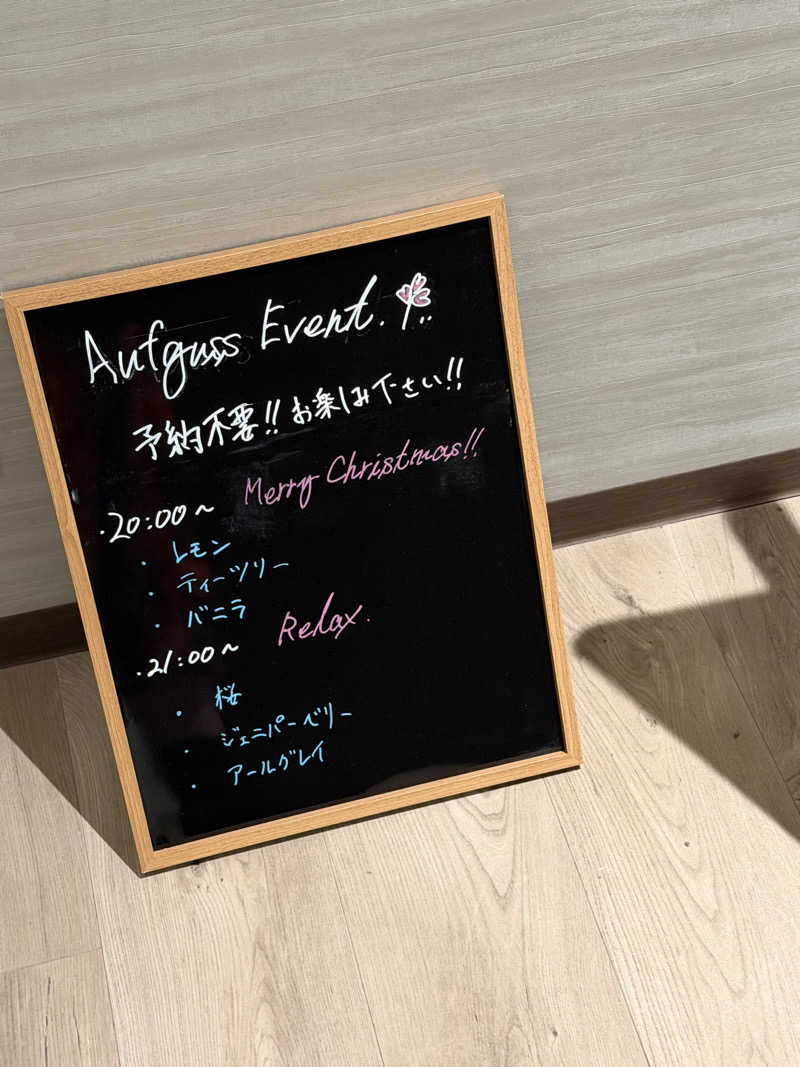 Aufguss Event.
予約不要!! お楽しみ下さい!!
Merry Christmas!!
・20:00～
・レモン
・ティーツリー
・バニラ
・21:00～ Relax.
・桜
・ジェニパーベリー
・アールグレイ